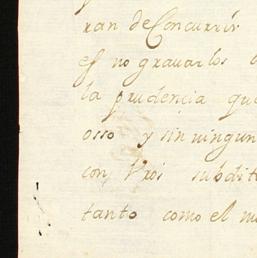 ran de Concurrir
es no grauarlos
la prudencia que
osso y sin ningun
con Vros subdit
tanto como el m